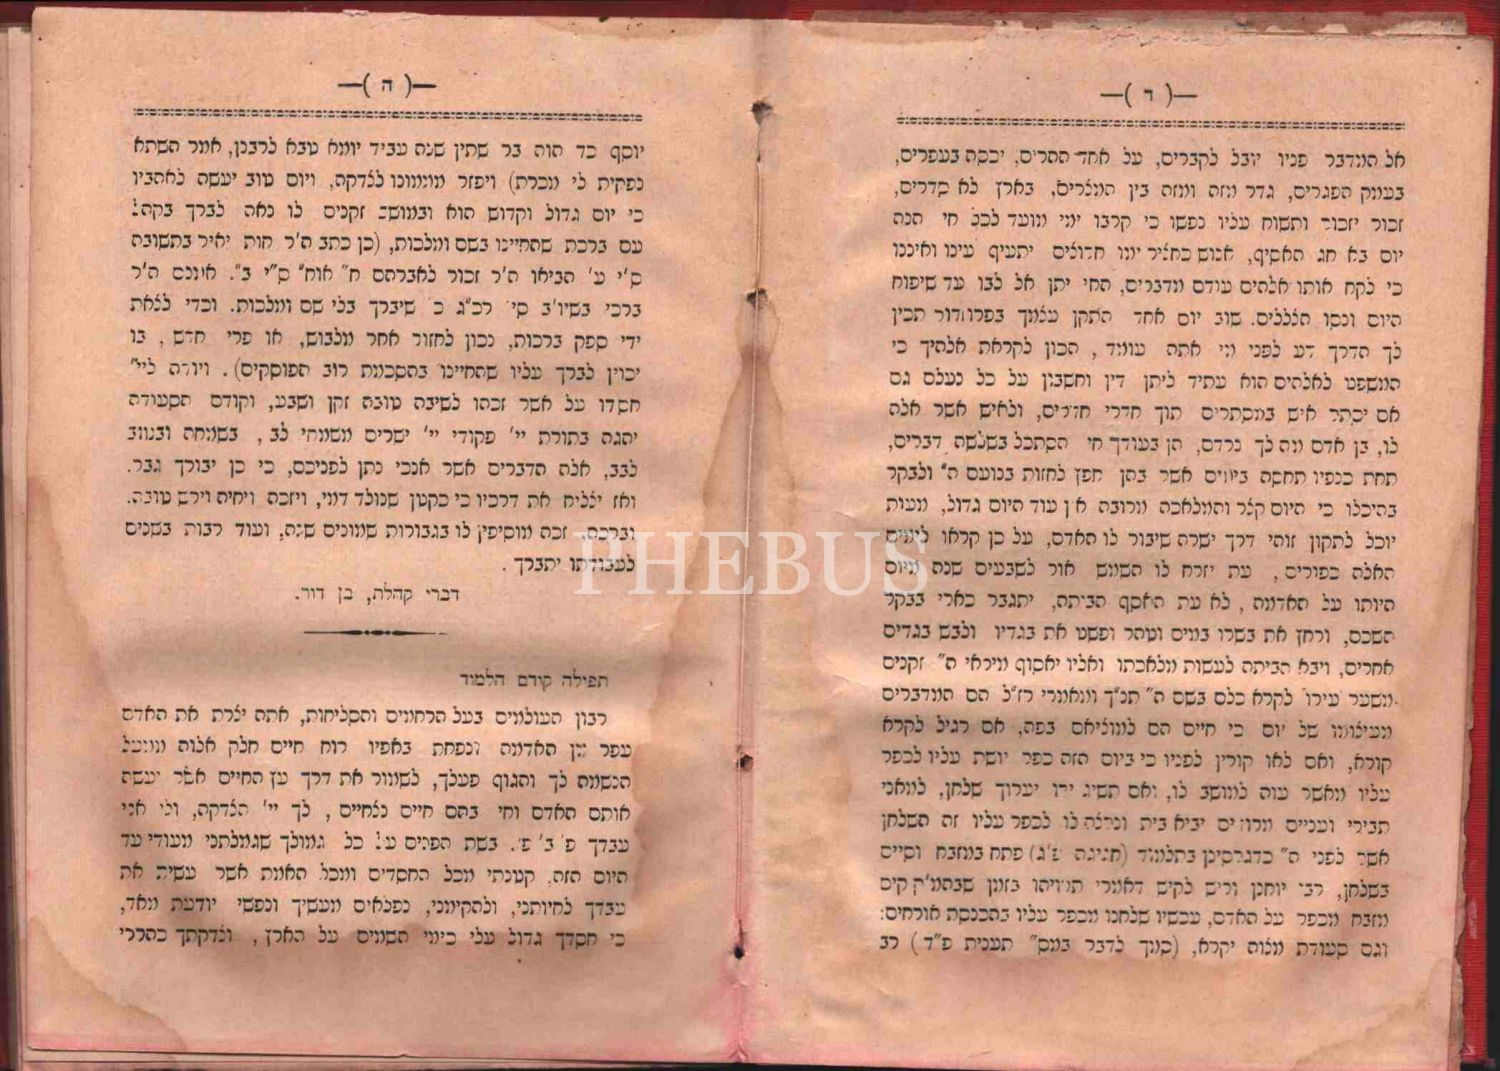 —( ד )—
אל המדבר פניו יובל לקברים, על אחד ההרים, יכסה בעפרים,
בעמק הפגרים, גדר מזה ומזה בין המצרים, בארץ לא סדרים,
זכור יזכור ותשוח עליו נפשו כי קרבו ימי מועד לכל חי הנה
יום בא חג האסיף, אנוש כחציר ימיו חדונים יתעיף עינו ואיננו
כי לקח אותו אלהים עודם מדברים, החי יתן אל לבו עד שיפוח
היום ונסו הצללים. שוב יום אחד התקן עצמך בפרוזדור תכין
לך הדרך דע לפני מי אתה עומד, הכון לקראת אלהיך כי
המשפט לאלהים הוא עתיד ליתן דין וחשבון על כל נעלם גם
אם יסתר איש במסתרים תוך חדרי חדרים, ולאיש אשר אלה
לו, בן אדם מה לך נרדם, הן בעודך חי הסתכל בשלשה דברים,
תחת כנפיו תחסה בימים אשר בהן חפץ לחזות בנועם ה״ ולבקר
בהיכלו כי היום קצר והמלאכה מרובה אין עוד היום גדול, מעות
יוכל לתקון זוהי דרך ישרה שיבור לו האדם, על כן קראו לימים
האלה כפורים, עת יזרח לו השמש אור לשבעים שנה מיום
היותו על האדמה, לא עת האסף הביתה, יתגבר כארי בבקר
השכם, ורחץ את בשרו במים וטהר ופשט את בגדיו ולבש בגדים
אחרים, ויבא הביתה לעשות מלאכתו ואליו יאסוף מיראי ה״ זקנים
משער עירו לקרא כלם בשם ה״ תנ״ך ומאמרי רז״ל הם המדברים
מעילומו של יום כי חיים הם למוציאם בפה, אם רגיל לקרא
קורא, ואם לאו קורין לפניו כי ביום הזה כפר יושת עליו לכפר
עליו מאשר עוה למושב לו, ואם תשיג ידו יערוך שלחן, למאני
תבירי ועניים מרודים יביא בית ונרצה לו לכפר עליו זה השלחן
אשר לפני ה״ כדגרסינן בתלמוד (חגיגה פ״ג) פתח במזבח וסיים
בשלחן, רבי יוחנן וריש לקיש דאמרי תרויהו בזמן שבהמ״ק קים
מזבח מכפר על האדם, עכשיו שלחנו מכפר עליו בהכנסת אורחים:
וגם סעודת מצוה יקרא, (סמך לדבר במס״ תענית פ״ד) רב
—( ה )—
יוסף כד הוה בר שתין שנה עביד יומא טבא לרבנן, אמר השתא
נפקית לי מכרת) ויפזר מממונו לצדקה, ויום טוב יעשה לאהביו
כי יום גדול וקדוש הוא ובמושב זקנים לו נאה לברך בקהל
עם ברכת שהחיינו בשם ומלכות, (כן כתב ה״ר חות יאיר בתשובה
ס״י ע׳ הביאו ה״ר זכור לאברהם ח״ אוח״ ס״י ב״. אומנם ה״ר
ברכי בשיו״ב סי׳ רכ״ג כ׳ שיברך בלי שם ומלכות. וכדי לצאת
ידי ספק ברכות, נכון לחזור אחר מלבוש, או פרי חדש, בו
יכוין לברך עליו שהחיינו בהסכמת רוב הפוסקים). ויודה ליי״
חסדו על אשר זכהו לשיבה טובה זקן ושבע, וקודם הסעודה
יהגה בתורת יי׳ פקודי יי׳ ישרים משמחי לב, בשמחה ובטוב
לבב, אלה הדברים אשר אנכי נתן לפניכם, כי כן יבורך גבר.
ואז יצליח את דרכיו כי כקטן שנולד דמי, ויזכה ויחיה וירש טובה.
וברכה. זכה מוסיפין לו בגבורות שמונים שנה, ועוד רבות בשנים
לעבודתו יתברך.
דברי קהלת, בן דור.
תפילה קודם הלמוד
רבון העולמים בעל הרחמים והסליחות, אתה יצרת את האדם
עפר מן האדמה ונפחת באפיו רוח חיים חלק אלוה ממעל
הנשמה לך והגוף פעלך, לשמור את דרך עץ החיים אשר יעשה
אותם האדם וחי בהם חיים נצחיים, לך יי׳ הצדקה, ולי אני
עבדך פ׳ ב׳ פ׳. בשת הפנים על כל גמולך שגמלתני מעודי עד
היום הזה, קטנתי מכל החסדים ומכל האמת אשר עשית את
עבדך לחיותני, ולהקימני, נפלאים מעשיך ונפשי יודעת מאד,
כי חסדך גדול עלי כימי השמים על הארץ, וצדקתך כהררי
PHEBUS